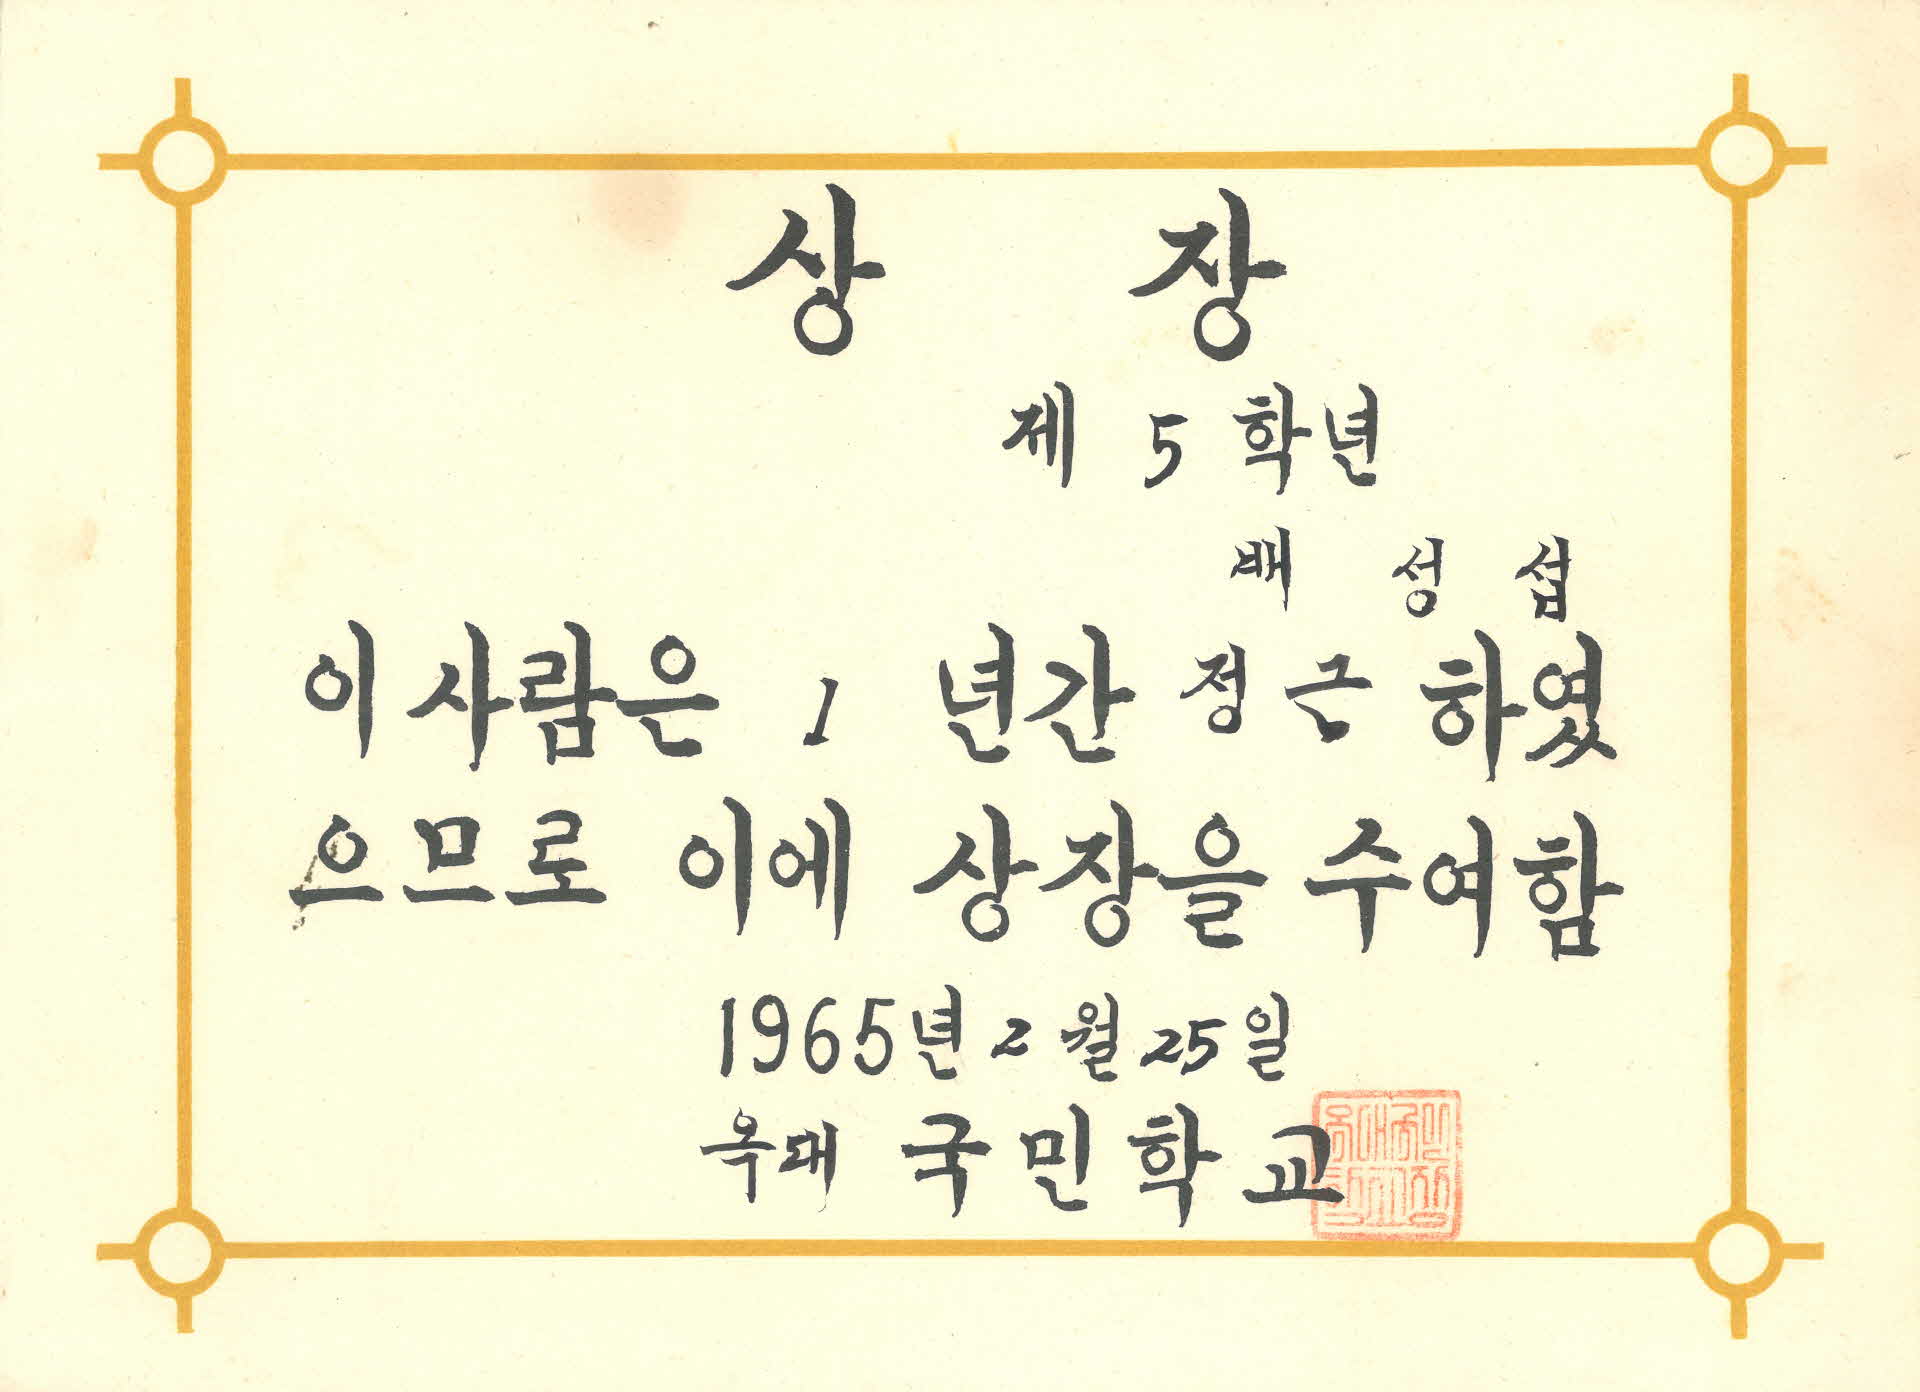 상 장
제 5 학년
배 성 섭
이 사람은 1 년간 정근 하였
으므로 이에 상장을 수여함
1965년 2월 25일
옥대 국민학교